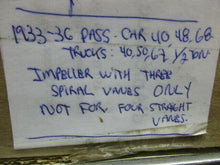 1933-36 PASS. CAR 40 48.68
TRUCKS: 40,50,67, 1/2 TON
IMPELLER WITH THREE
SPIRAL VANES ONLY
NOT FOR FOUR STRAGHT
VANES.